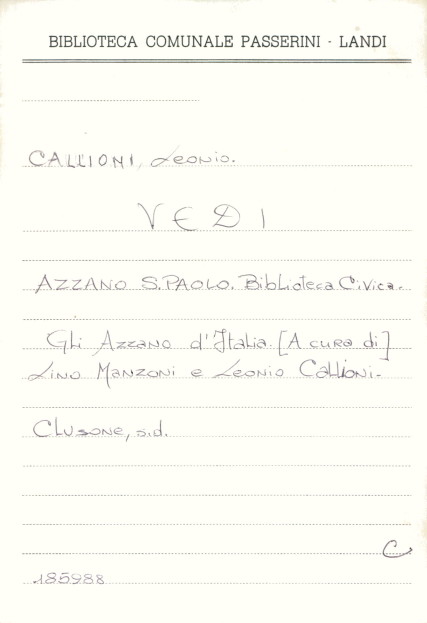 BIBLIOTECA COMUNALE PASSERINI - LANDI
CALLIONI, Leonio.
VEDI
AZZANO S.PAOLO. Biblioteca Civica.
Gli Azzano d'Italia. [A cura di]
Lino Manzoni e Leonio Callioni.
Clusone, s.d.
C
185988